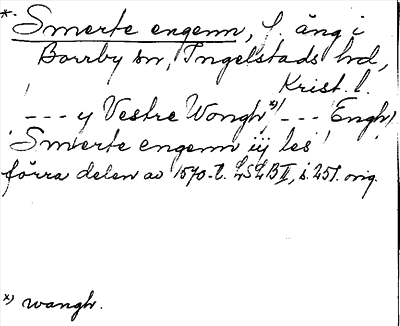 * Smerte engenn, f. äng i
Borrby sn, Ingelstads hd,
Krist. l.
! - - - y Vestre Wongh x) - - - Engh/
Smerte engenn iij les!
förra delen av 1570-t. LSLB II, s. 251. orig.
x) wangh.